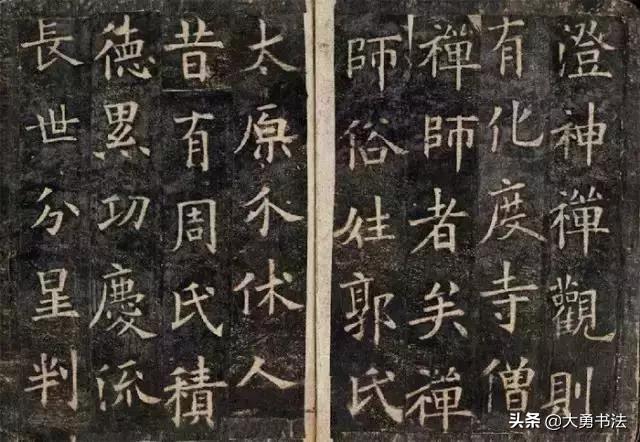 澄神禪觀則
有化度寺僧
禪師者矣禪
師俗姓郭氏
太原介休人
昔有周氏積
徳累功慶流
長世分星判
头条 @大勇书法